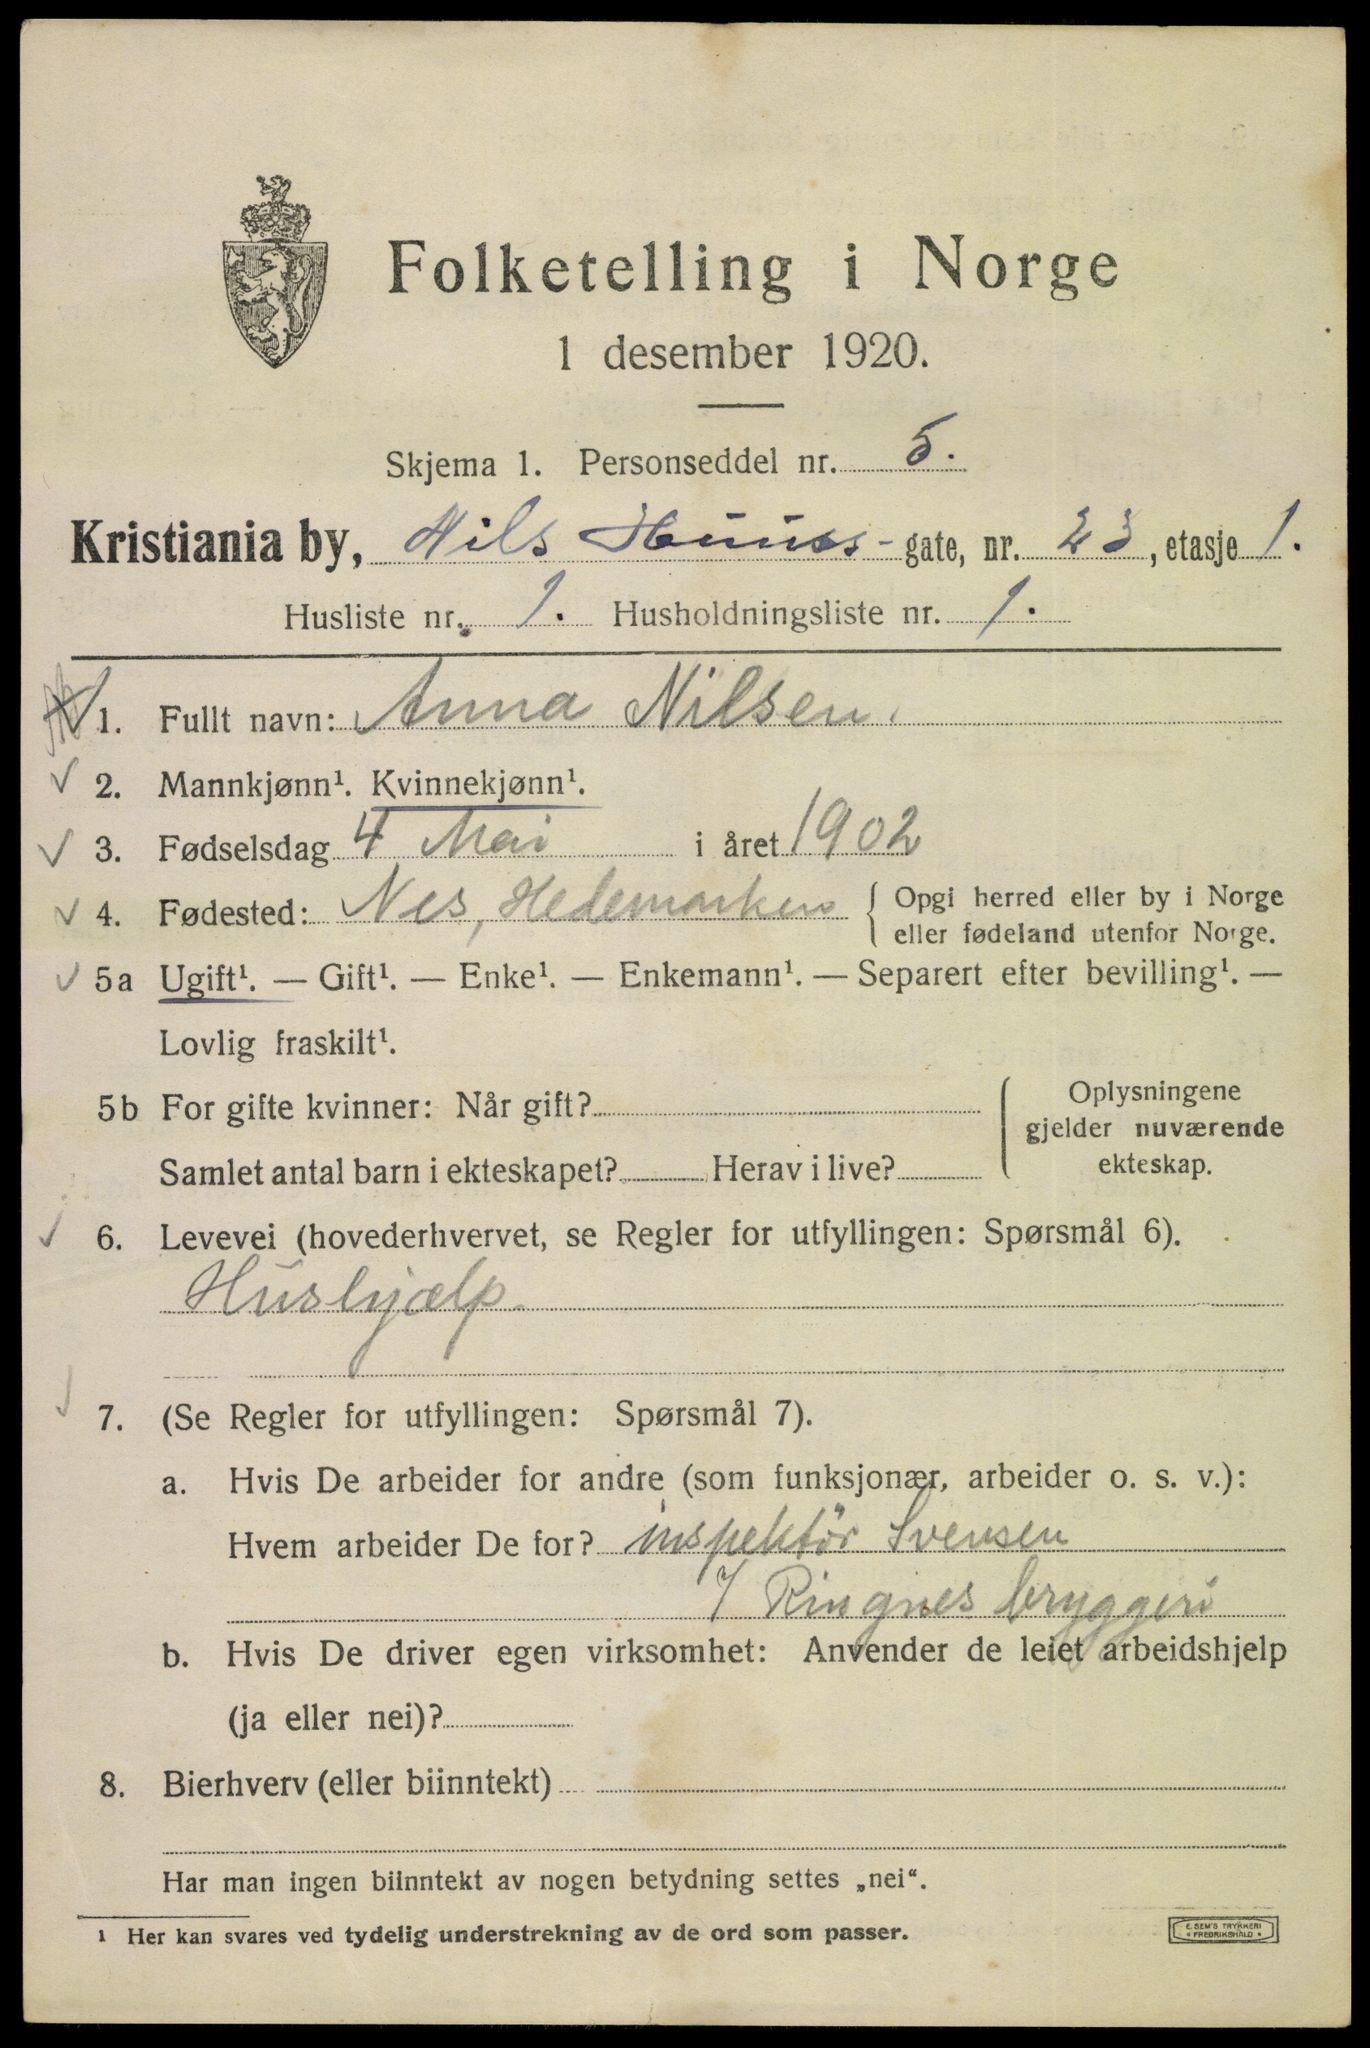 Folketelling i Norge
1 desember 1920.
Skjema 1. Personseddel nr. 5.
Kristiania by, Nils Huuss-gate, nr. 23, etasje 1.
Husliste nr. 1. Husholdningsliste nr. 1.
1. Fullt navn: Anna Nilsen.
2. Mannkjønn¹. Kvinnekjønn¹.
3. Fødselsdag 4 Mai i året 1902
4. Fødested: Nes, Hedemarken { Opgi herred eller by i Norge
eller fødeland utenfor Norge.
5a Ugift¹. — Gift¹. — Enke¹. — Enkemann¹. — Separert efter bevilling¹. —
Lovlig fraskilt¹.
5b For gifte kvinner: Når gift? { Oplysningene
gjelder nuværende
Samlet antal barn i ekteskapet? Herav i live? ekteskap.
6. Levevei (hovederhvervet, se Regler for utfyllingen: Spørsmål 6).
Hushjælp.
7. (Se Regler for utfyllingen: Spørsmål 7).
a. Hvis De arbeider for andre (som funksjonær, arbeider o. s. v.):
Hvem arbeider De for? inspektör Svensen
/ Ringnes bryggeri
b. Hvis De driver egen virksomhet: Anvender de leiet arbeidshjelp
(ja eller nei)?
8. Bierhverv (eller biinntekt)
Har man ingen biinntekt av nogen betydning settes „nei“.
¹ Her kan svares ved tydelig understrekning av de ord som passer.
E. SEM'S TRYKKERI
* FREDRIKSHALD *